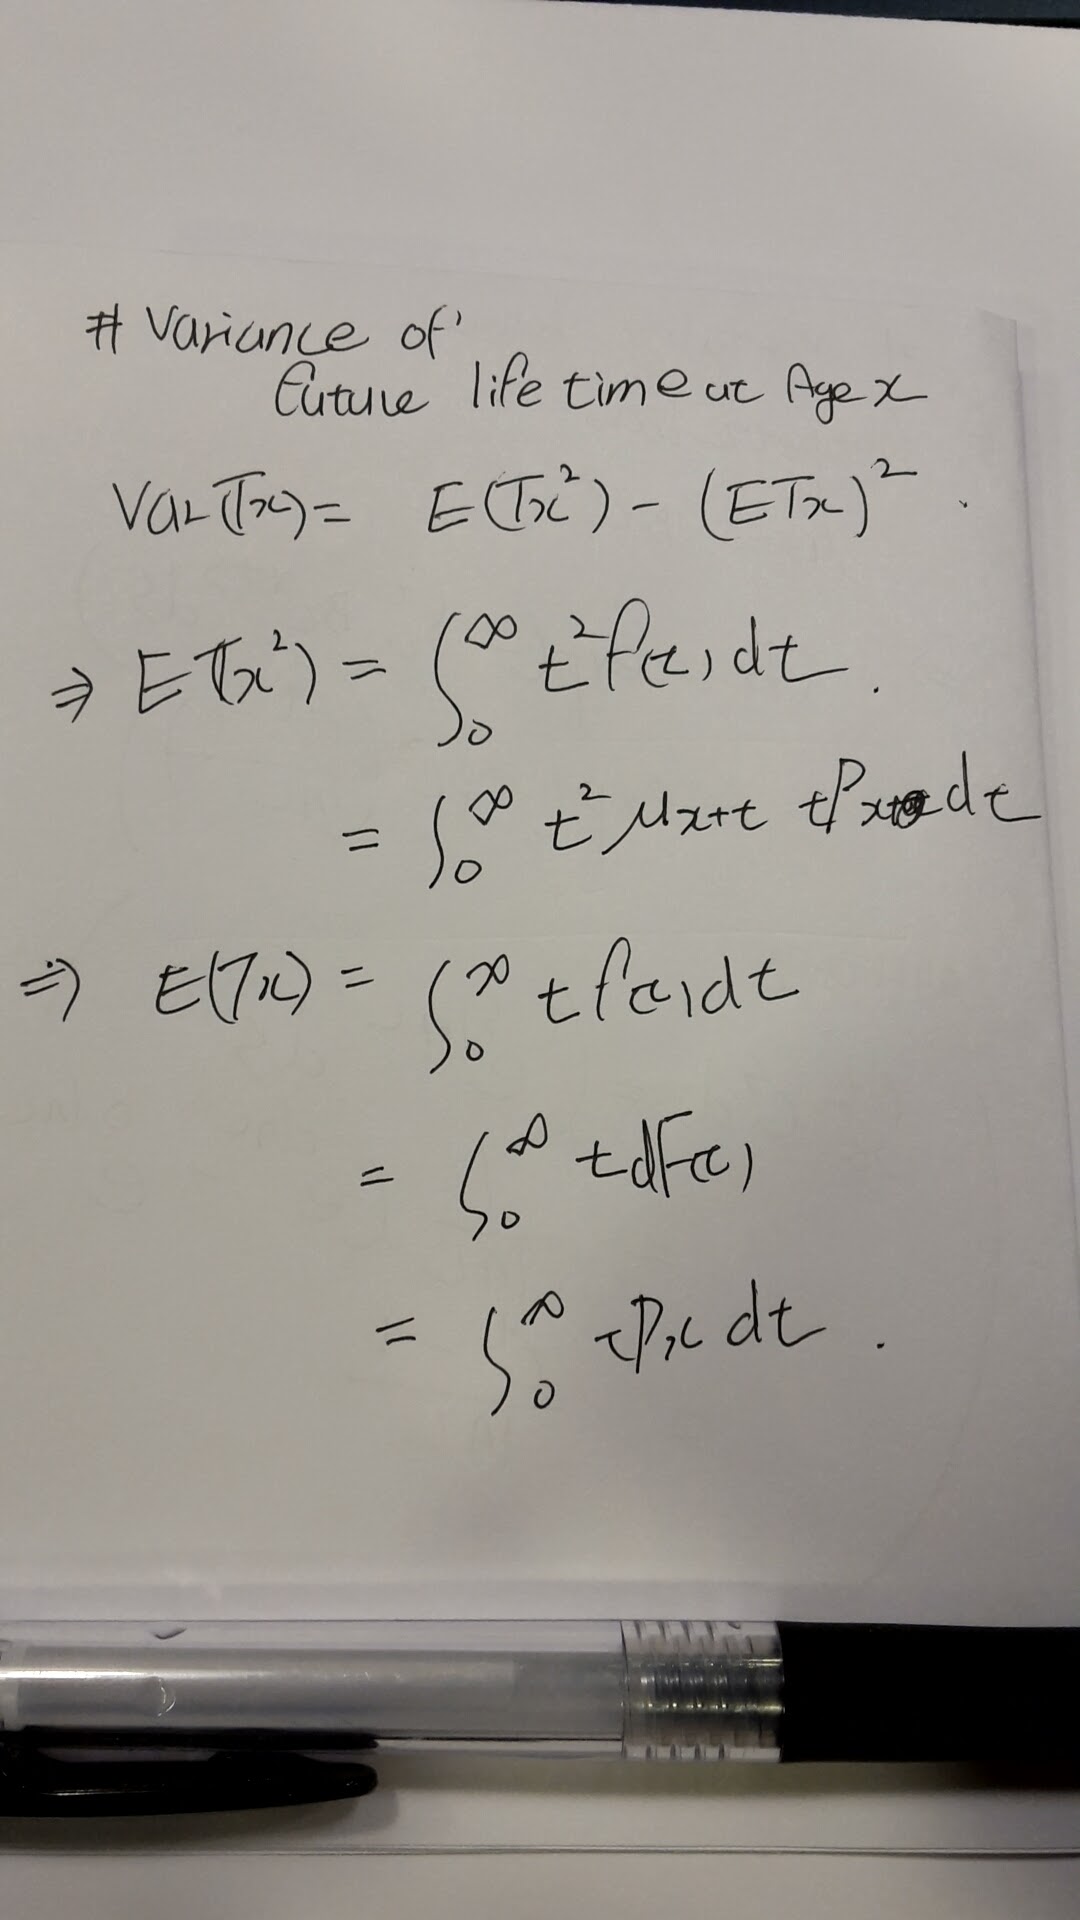 # Variance of
future life time at Age x
Var(Tx) = E(Tx²) - (ETx)² .
⇒ E(Tx²) = ∫₀^∞ t² f(t) dt .
= ∫₀^∞ t² μx+t tPx dt
⇒ E(Tx) = ∫₀^∞ t f(t) dt
= ∫₀^∞ t dF(t)
= ∫₀^∞ tPx dt .